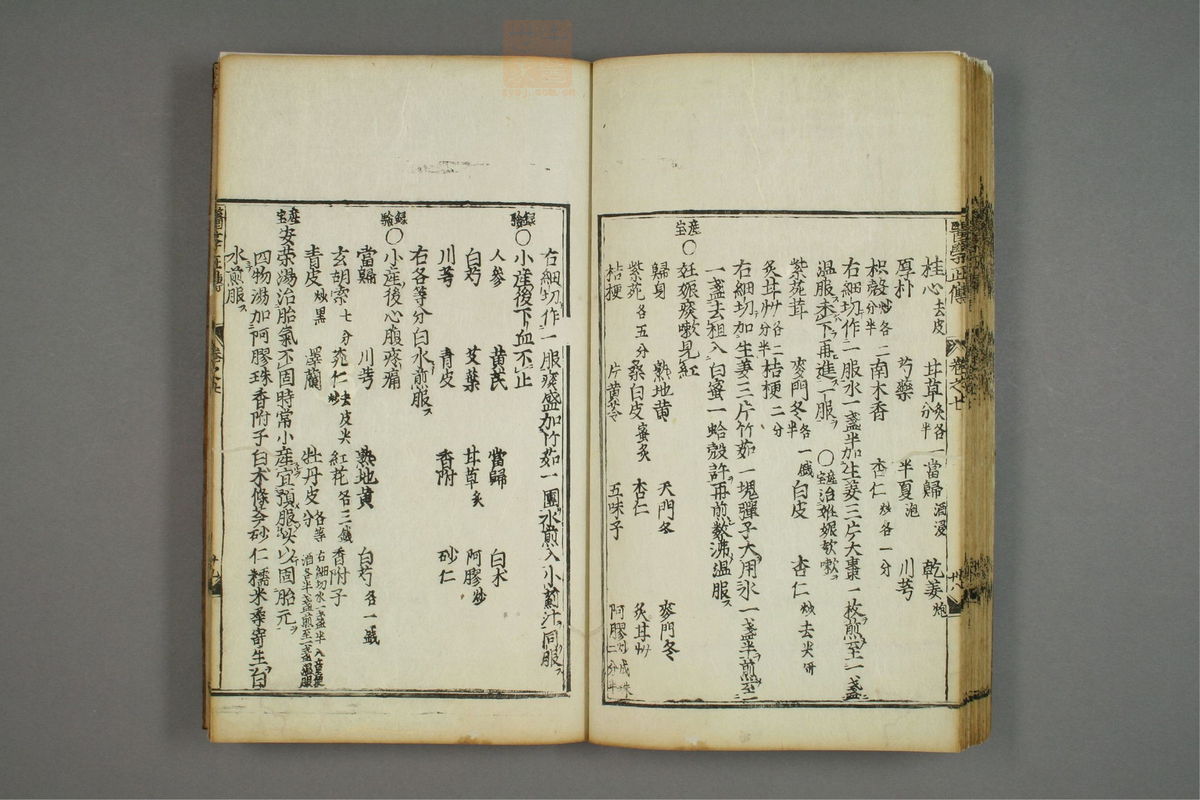 醫學正傳 卷之七
桂心去皮 甘草炙各一分半 當歸酒浸 乾姜炮
厚朴 芍藥 半夏泡 川芎
枳殼炒各二分半 南木香 杏仁炒各一分
右細切作一服水一盞半加生姜三片大棗一枚煎至一盞
溫服未下再進一服 ○産宝治姙娠欬嗽
紫菀茸 麥門冬各一錢半 白皮 杏仁炒去尖研
炙甘艸各二分半 桔梗二分
右細切加生姜三片竹茹一塊彈子大用水一盞半煎至
一盞去粗入白蜜一蛤殼許再煎數沸溫服
産宝○妊娠痰嗽見紅
歸身 熟地黃 天門冬 麥門冬
紫菀各五分 桑白皮蜜炙 杏仁 炙甘艸
桔梗 片黃芩 五味子 阿膠
右細切作一服痰盛加竹茹一團水煎入小薊汁同服
驗録○小産後下血不止
人參 黃芪 當歸 白朮
白芍 艾葉 甘草炙 阿膠炒
川芎 青皮 香附 砂仁
右各等分白水煎服
驗録○小産後心腹疼痛
當歸 川芎 熟地黃 白芍各一錢
玄胡索七分 桃仁去皮尖炒 紅花各三錢 香附子
青皮炒黑 澤蘭 牡丹皮各等分 右細切水一盞半入童便酒各半盞煎至一盞溫服
産宝安榮湯治胎氣不固時常小産宜預服以固胎元
四物湯加阿膠珠香附子白朮條芩砂仁糯米桑寄生白
水煎服
醫學正傳 卷之七